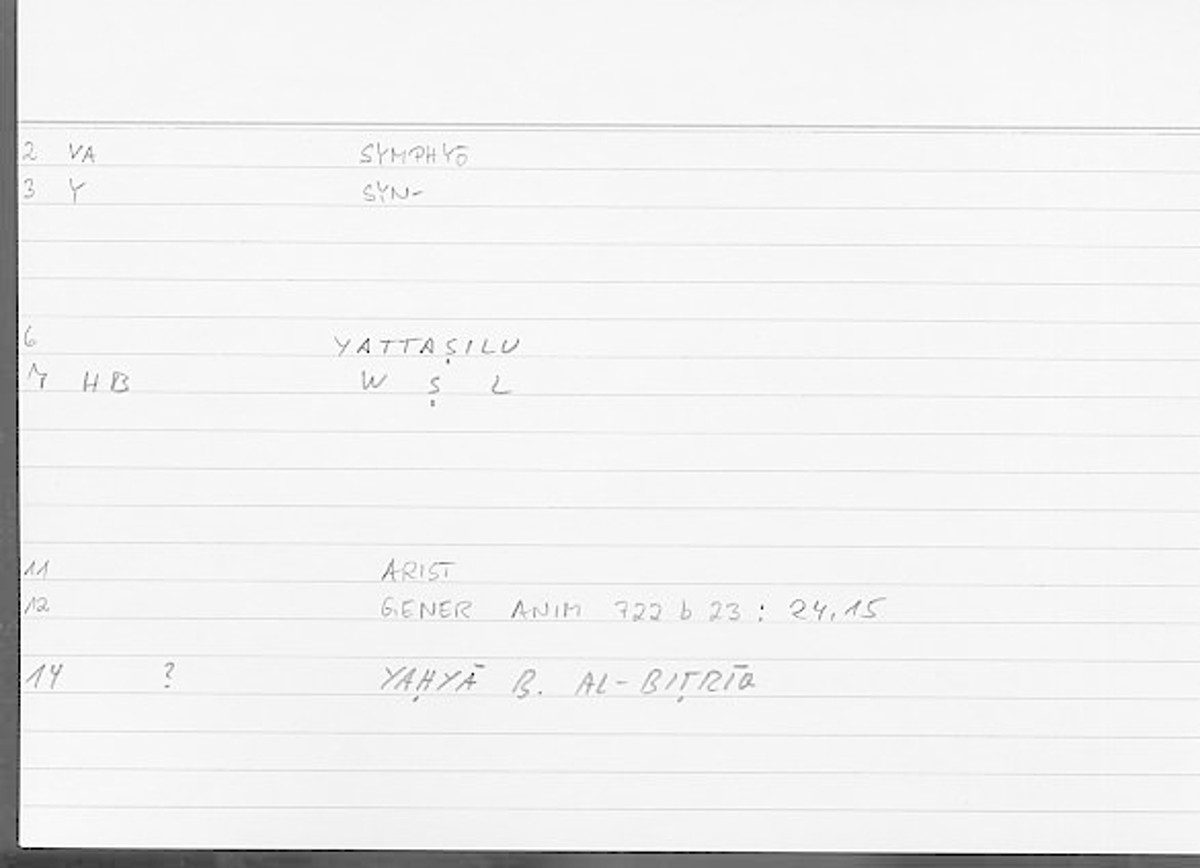 2 VA SYMPHYŌ
3 Y SYN-
6 YATTAṢILU
7 HB W Ṣ L
11 ARIST
12 GENER ANIM 722 b 23 : 24,15
14 ? YAḤYĀ B. AL-BIṬRĪQ